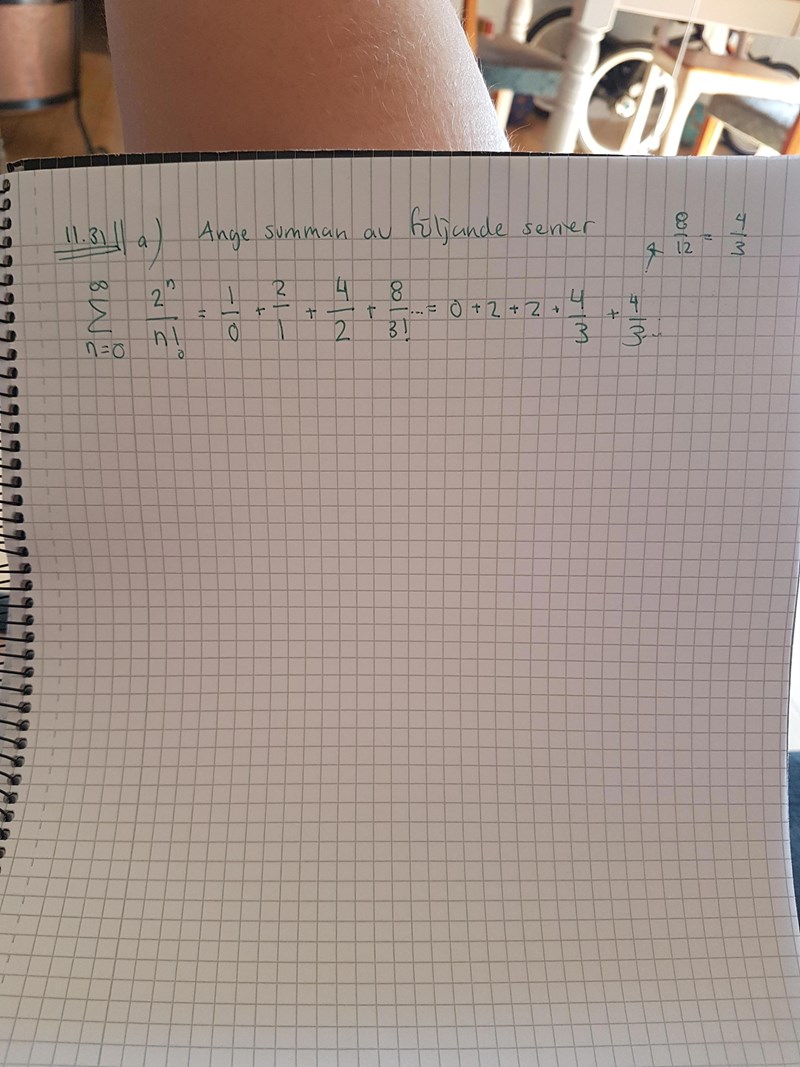 11.31 a) Ange summan av följande serier 8/12 = 4/3
∞∑n=0 2^n/n! = 1/0 + 2/1 + 4/2 + 8/3! ... = 0 + 2 + 2 + 4/3 + 4/3 ...